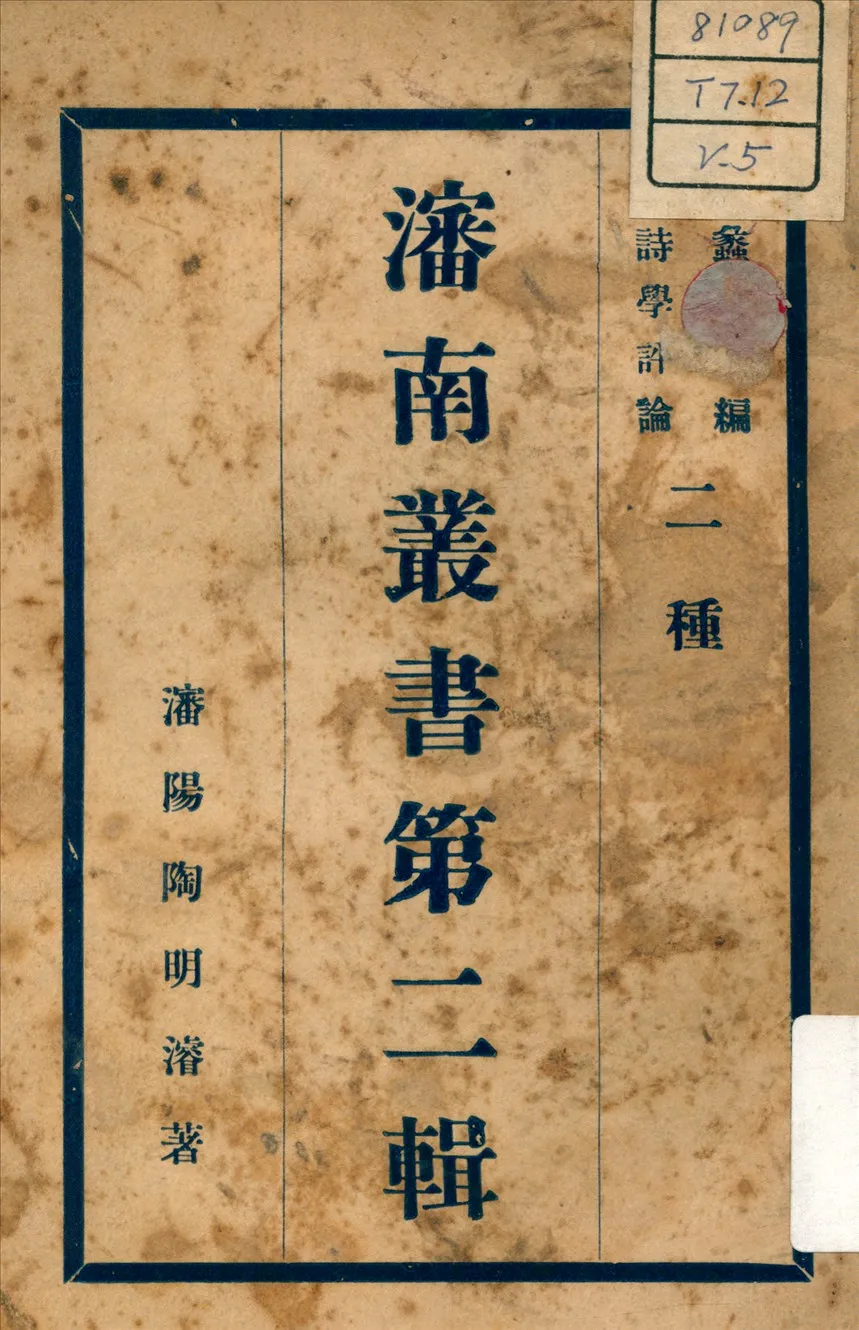 81089
T7.12
V.5
蠡 編
詩學 論
二種
瀋南叢書第二輯
瀋陽陶明濬著